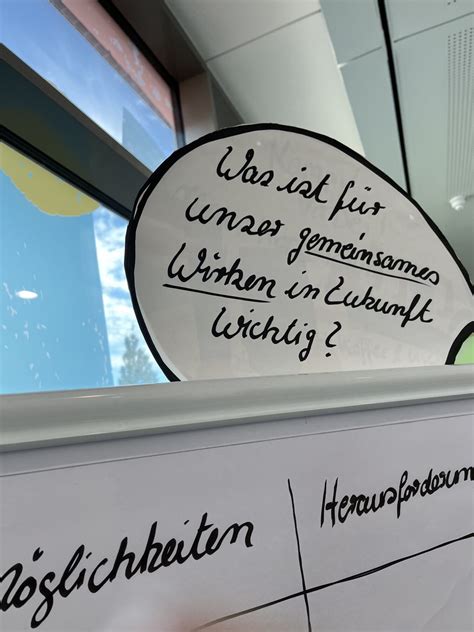 Was ist für
unser gemeinsames
Wirken in Zukunft
wichtig?
Möglichkeiten
Herausforderun